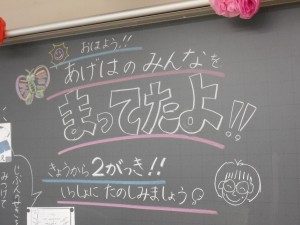 おはよう!!
あげはのみんなを
まってたよ!!
きょうから2がっき!!
いっしょにたのしみましょう♪